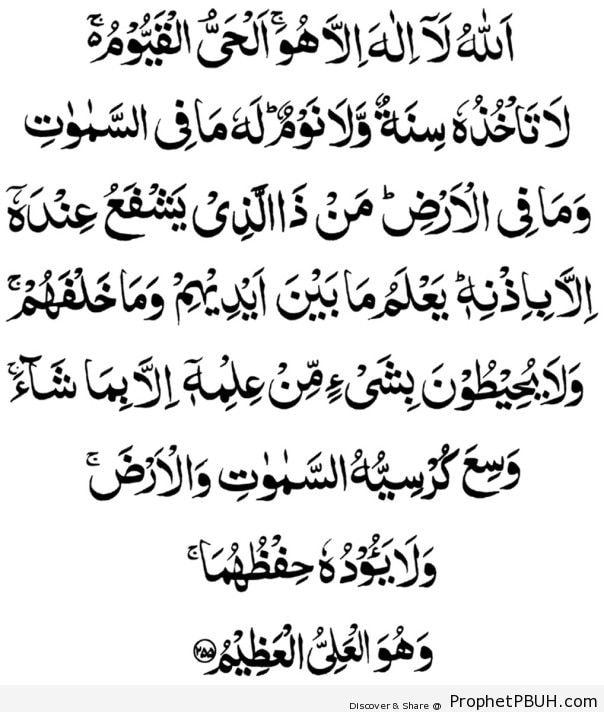 اَللّٰهُ لَاۤ اِلٰهَ اِلَّا هُوَۚ اَلْحَیُّ الْقَیُّوْمُ ۵ۚ
لَا تَاْخُذُهٗ سِنَةٌ وَّلَا نَوْمٌؕ لَهٗ مَا فِی السَّمٰوٰتِ
وَمَا فِی الْاَرْضِؕ مَنْ ذَا الَّذِیْ یَشْفَعُ عِنْدَهٗۤ
اِلَّا بِاِذْنِهٖؕ یَعْلَمُ مَا بَیْنَ اَیْدِیْهِمْ وَمَا خَلْفَهُمْۚ
وَلَا یُحِیْطُوْنَ بِشَیْءٍ مِّنْ عِلْمِهٖۤ اِلَّا بِمَا شَآءَۚ
وَسِعَ كُرْسِیُّهُ السَّمٰوٰتِ وَالْاَرْضَۚ
وَلَا یَـُٔوْدُهٗ حِفْظُهُمَاۚ
وَهُوَ الْعَلِیُّ الْعَظِیْمُ ۲۵۵
Discover & Share @ ProphetPBUH.com